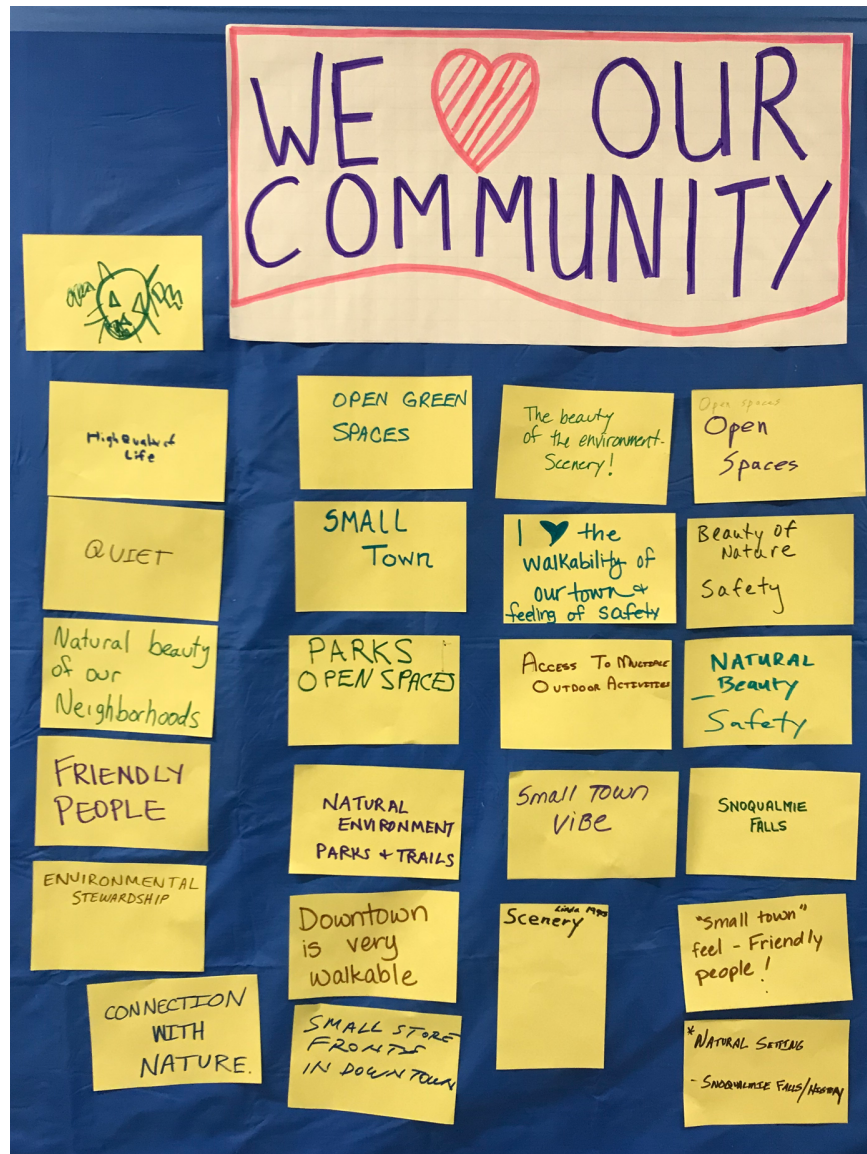 WE OUR
COMMUNITY
High Quality of
Life
QUIET
Natural beauty
of our
Neighborhoods
FRIENDLY
PEOPLE
ENVIRONMENTAL
STEWARDSHIP
CONNECTION
WITH
NATURE.
OPEN GREEN
SPACES
SMALL
Town
PARKS
OPEN SPACES
NATURAL
ENVIRONMENT
PARKS + TRAILS
Downtown
is very
walkable
SMALL STORE
FRONTS
IN DOWNTOWN
The beauty
of the environment-
Scenery!
I the
walkability of
our town +
feeling of safety
ACCESS TO MULTIPLE
OUTDOOR ACTIVITIES
Small Town
ViBe
Linda
Scenery
Open spaces
Open
Spaces
Beauty of
Nature
Safety
NATURAL
Beauty
Safety
SNOQUALMIE
FALLS
"Small town"
feel - Friendly
people!
*NATURAL SETTING
- SNOQUALMIE FALLS/HISTORY